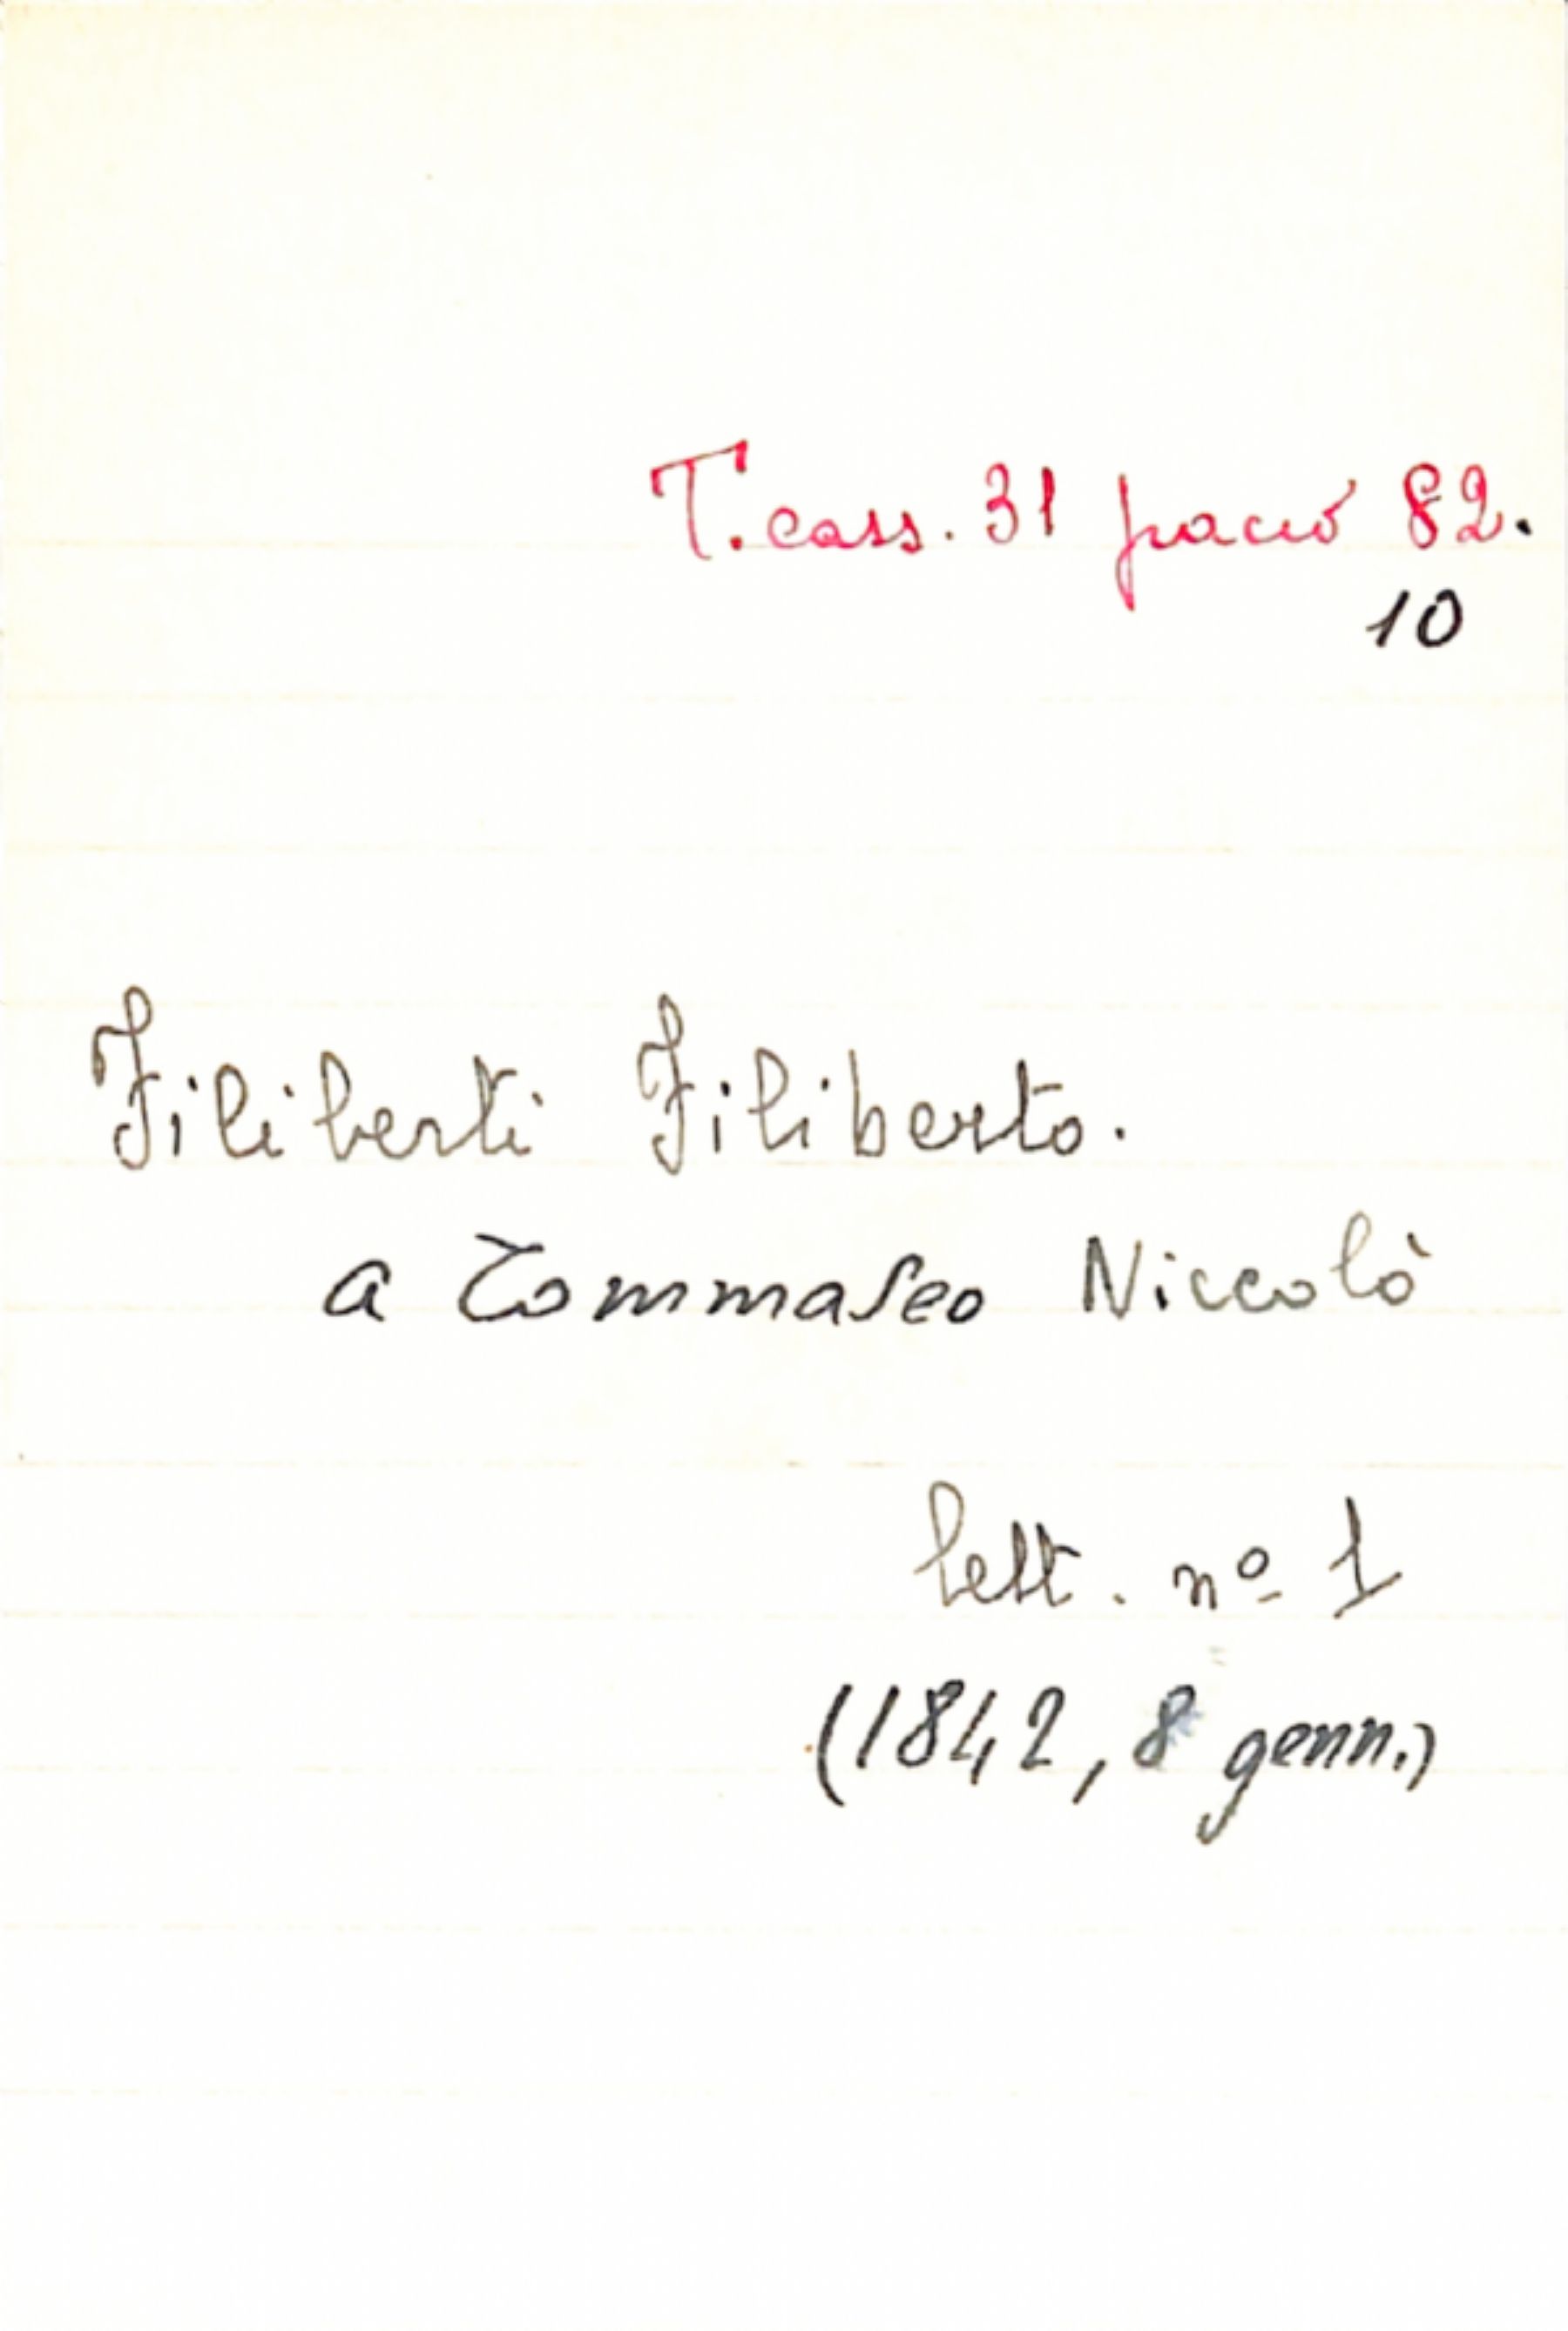 T. cass. 31 pacco 82.
10
Filiberti Filiberto.
a Tommaseo Niccolò
lett. nº 1
(1842, 8 genn.)